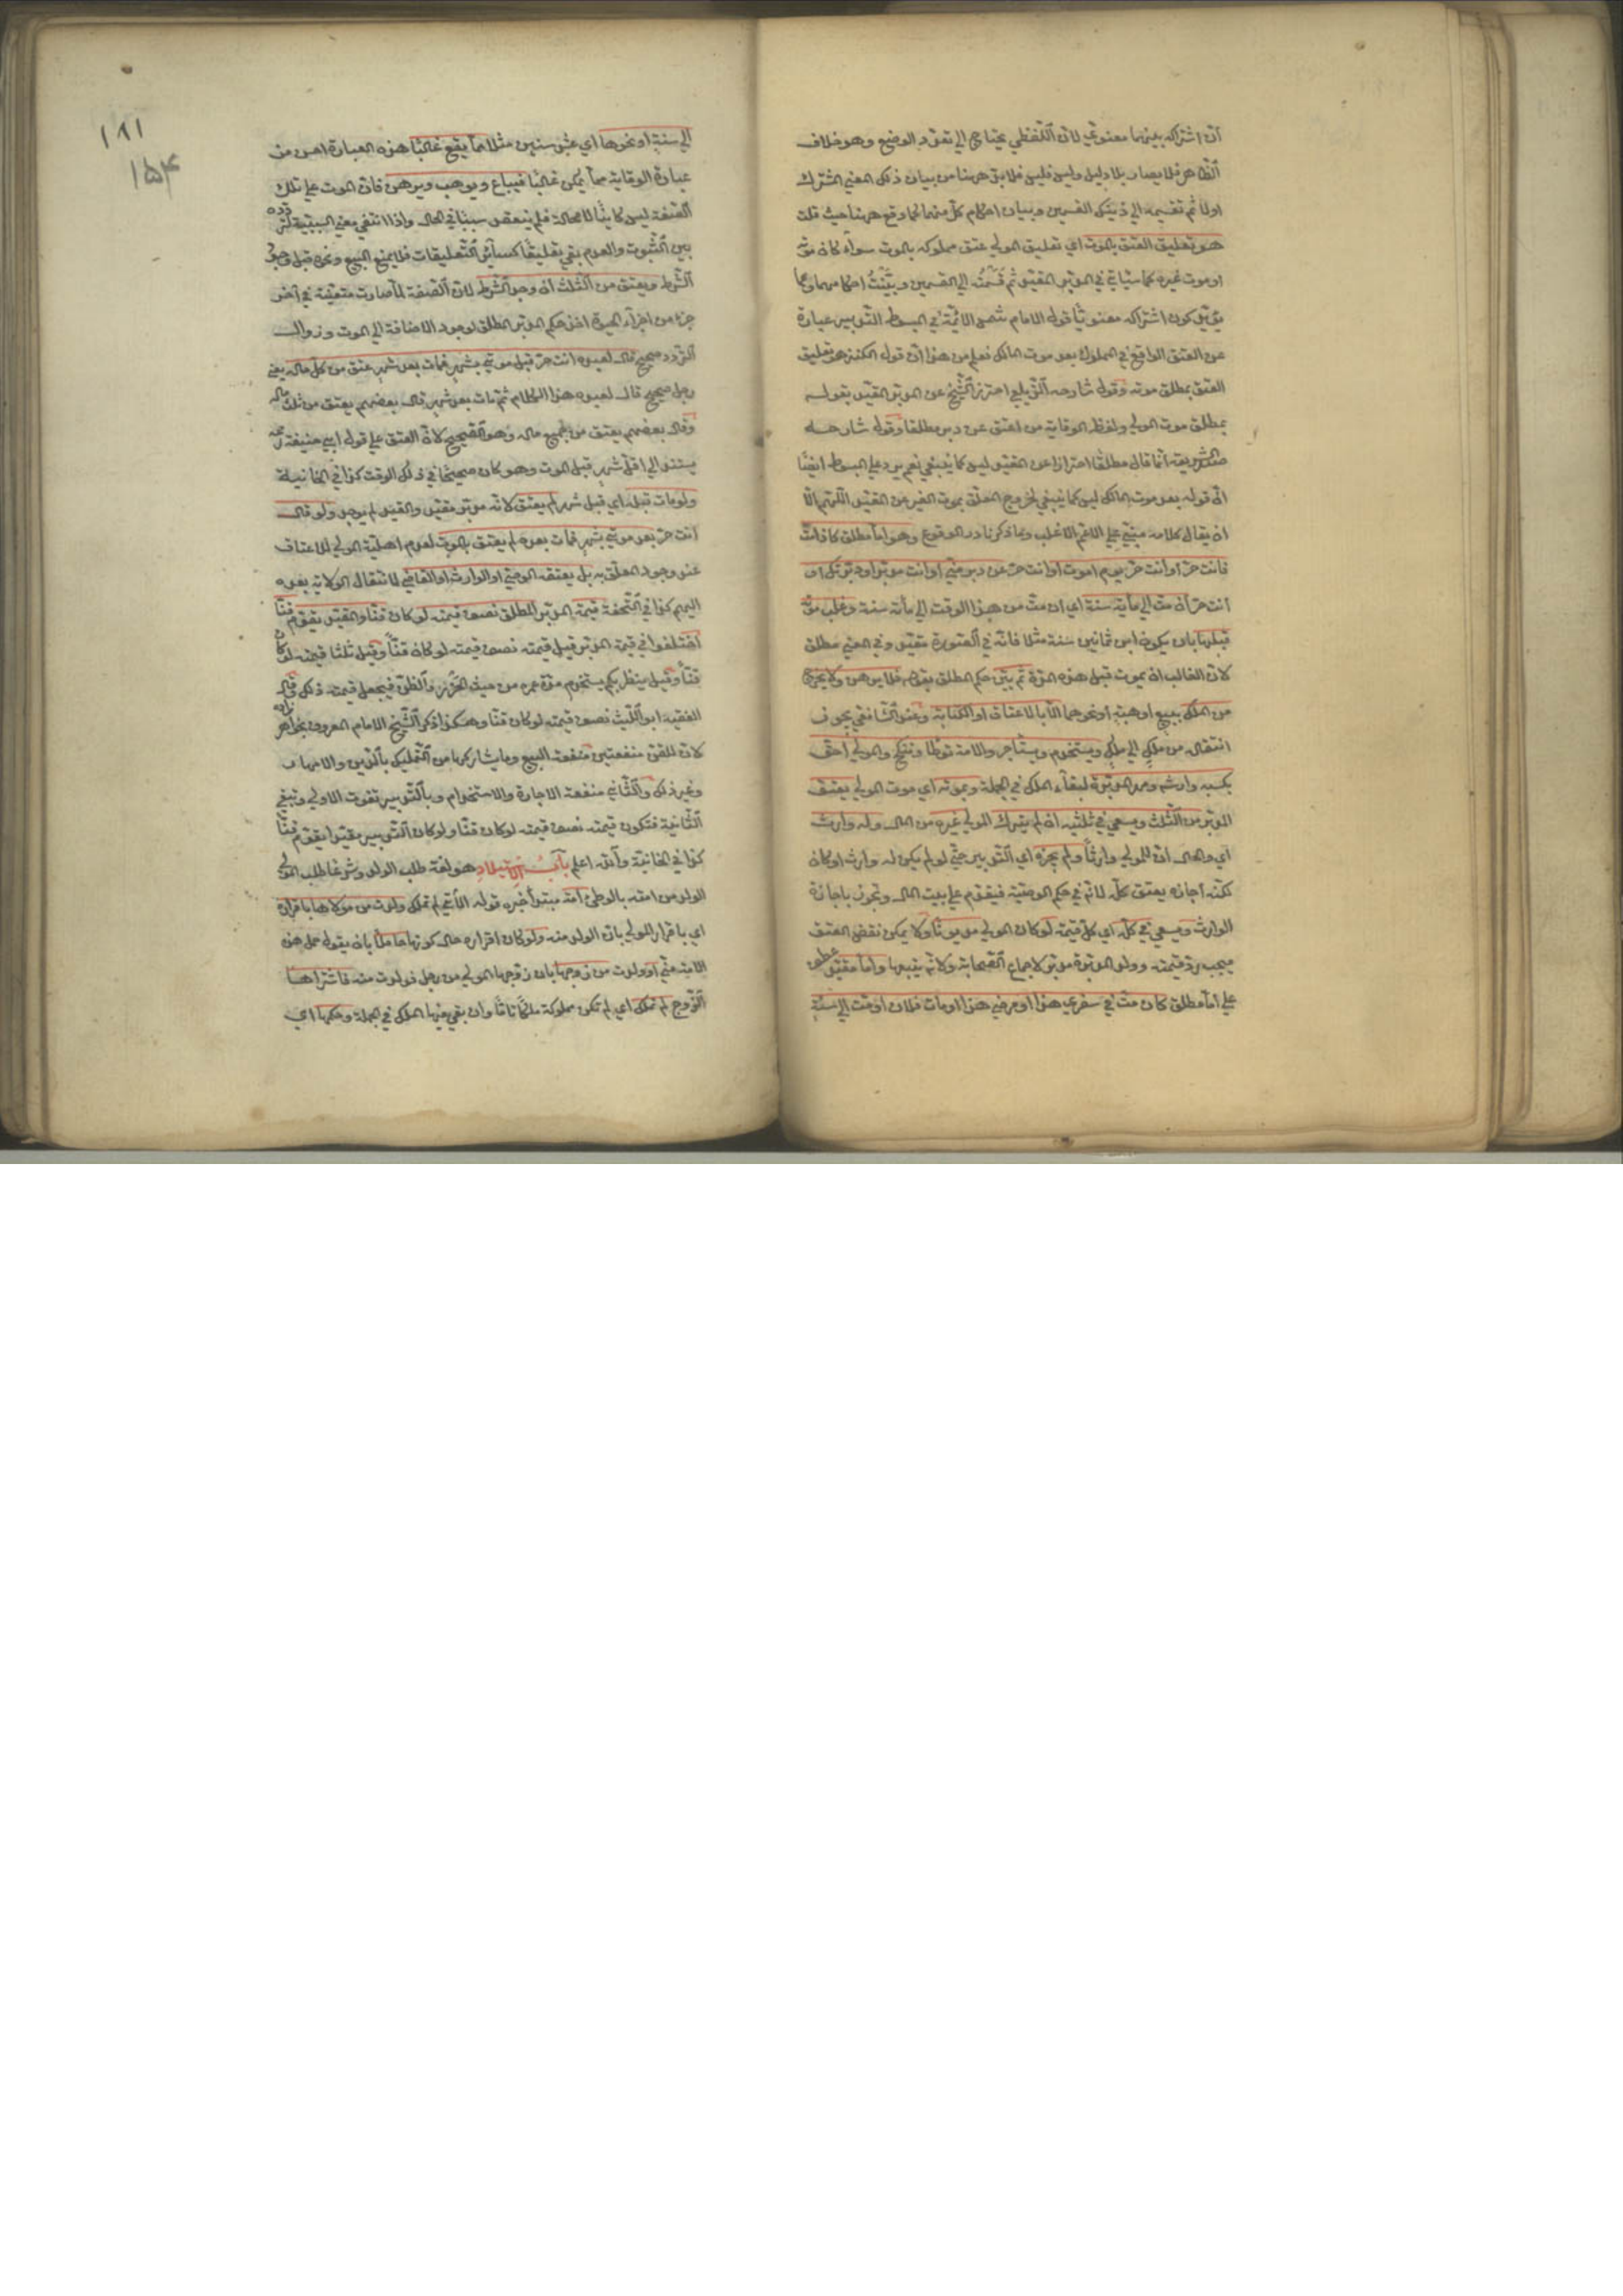 ان اشتراكه بينهما معنوي لان اللفظي يحتاج الي تعدد الوضع وهو خلاف
الظاهر فلا يصار بلا دليل وليس فليس فلا بد ههنا من بيان ذلك المعني المشترك
اولا ثم تقسيمه الي ذينك القسمين وبيان احكام كل منهما كما وقع ههنا حيث قلت
هو تعليق العتق بالموت اي تعليق المولي عتق مملوكه بالموت سواء كان موته
او موت غيره كما سيأتي في المدبر المقيد ثم قسمته الي القسمين وبينت احكامهما ومما
يؤيد كون اشتراكه معنويا قول الامام شمس الائمة في المبسوط التدبير عبارة
عن العتق الواقع في المملوك بعد موت المالك فعلم من هذا ان قول الكنز هو تعليق
العتق بمطلق موته وقول شارحه الزيلعي احترز الشيخ عن المدبر المقيد بقوله
بمطلق موت المولي ولفظ الوقاية من اعتق عن دبر مطلقا وقول شارحه
صدر الشريعة انما قال مطلقا احترازا عن المقيد ليس كما ينبغي نعم يرد علي المبسوط ايضا
ان قوله بعد موت المالك ليس كما ينبغي لخروج المعلق بموت الغير عن المقيد اللهم الا
ان يقال كلامه مبني علي الاعم الاغلب وما ذكر نادر الوقوع وهو اما مطلق كاذا مت
فانت حر او انت حر يوم اموت او انت حر عن دبر مني او انت مدبر او دبرتك او
انت حر ان مت الي مائة سنة اي ان مت من هذا الوقت الي مائة سنة وغلب موته
قبلها بان يكون ابن ثمانين سنة مثلا فانه في الصورة مقيد وفي المعني مطلق
لان الغالب ان يموت قبل هذه المدة ثم بين حكم المطلق بقوله فلا يرهن ولا يخرج
من الملك ببيع او هبة او نحوهما الا بالاعتاق او الكتابة وعند الشافعي يجوز
انتقاله من ملك الي ملك ويستخدم ويستأجر والامة توطأ وتنكح والمولي احق
بكسبه وارشه ومهر المدبرة لبقاء الملك في الجملة وبموته اي موت المولي يعتق
المدبر من الثلث ويسعي في ثلثيه ان لم يترك المولي غيره من المال وله وارث
اي والحال ان للمولي وارثا ولم يجزه اي التدبير حتي لو لم يكن له وارث او كان
لكنه اجازه يعتق كله لانه في حكم الوصية فيقدم علي بيت المال وتجوز باجازة
الوارث ويسعي في كله اي كل قيمته لو كان المولي مديونا ولا يمكن نقض العتق
فيجب رد قيمته وولد المدبرة مدبر لاجماع الصحابة ولانه يتبعها واما مقيد عطف
علي اما مطلق كان مت في سفري هذا او مرضي هذا او مات فلان او مت الي سنة
١٨١
١٥٤
الي سنة او نحوها اي عشر سنين مثلا مما يقع غالبا هذه العبارة احسن من
عبارة الوقاية مما يمكن غالبا فيباع ويوهب ويرهن فان الموت علي تلك
الصفة ليس كائنا لا محالة فلم ينعقد سببا في الحال واذا انتفي معني السببية لتردده
بين الثبوت والعدم بقي تعليقا كسائر التعليقات فلا يمنع البيع ونحوه قبل وجود
الشرط ويعتق من الثلث ان وجد الشرط لان الصفة لما صارت متعينة في آخر
جزء من اجزاء الحيوة اخذ حكم المدبر المطلق لوجود الاضافة الي الموت وزوال
التردد صحيح قال لعبده انت حر قبل موتي بشهر فمات بعد شهر عتق من كل ماله يعني
رجل صحيح قال لعبده هذا الكلام ثم مات بعد شهر قال بعضهم يعتق من ثلث ماله
وقال بعضهم يعتق من جميع ماله وهو الصحيح لان العتق علي قول ابي حنيفة رحمه
يستند الي اقل شهر قبل الموت وهو كان صحيحا في ذلك الوقت كذا في الخانية
ولو مات قبله اي قبل شهر لم يعتق لانه مدبر مقيد والقيد لم يوجد ولو قال
انت حر بعد موتي بشهر فمات بعده لم يعتق بالموت لعدم اهلية المولي للاعتاق
عند وجود المعلق به بل يعتقه الوصي او الوارث او القاضي لانتقال الولاية بعده
اليهم كذا في التحفة قيمة المدبر المطلق نصف قيمته لو كان قنا والمقيد يقوم قنا
اختلفوا في قيمة المدبر قيل قيمته نصف قيمته لو كان قنا وقيل ثلثا قيمته لو كان
قنا وقيل ينظر بكم يستخدم مدة عمره من حيث الحزر والظن فيجعل قيمته ذلك قال
الفقيه ابو الليث نصف قيمته لو كان قنا وهكذا ذكر الشيخ الامام المعروف بخواهر زاده
لان للقن منفعتين منفعة البيع وما يشاركها من التمليك بالدين والامهار
وغير ذلك والثاني منفعة الاجارة والاستخدام وبالتدبير تفوت الاولي وتبقي
الثانية فتكون قيمته نصف قيمته لو كان قنا ولو كان التدبير مقيدا يقوم قنا
كذا في الخانية والله اعلم باب الاستيلاد هو لغة طلب الولد وشرعا طلب المولي
الولد من امته بالوطئ امة مبتدأ خبره قوله الآتي لم تملك ولدت من مولاها باقراره
اي باقرار المولي بان الولد منه ولو كان اقراره حال كونها حاملا بان يقول حمل هذه
الامة مني او ولدت من زوجها بان زوجها المولي من رجل فولدت منه فاشتراها
الزوج لم تملك اي لم تكن مملوكة ملكا تاما وان بقي فيها الملك في الجملة وحكمها اي